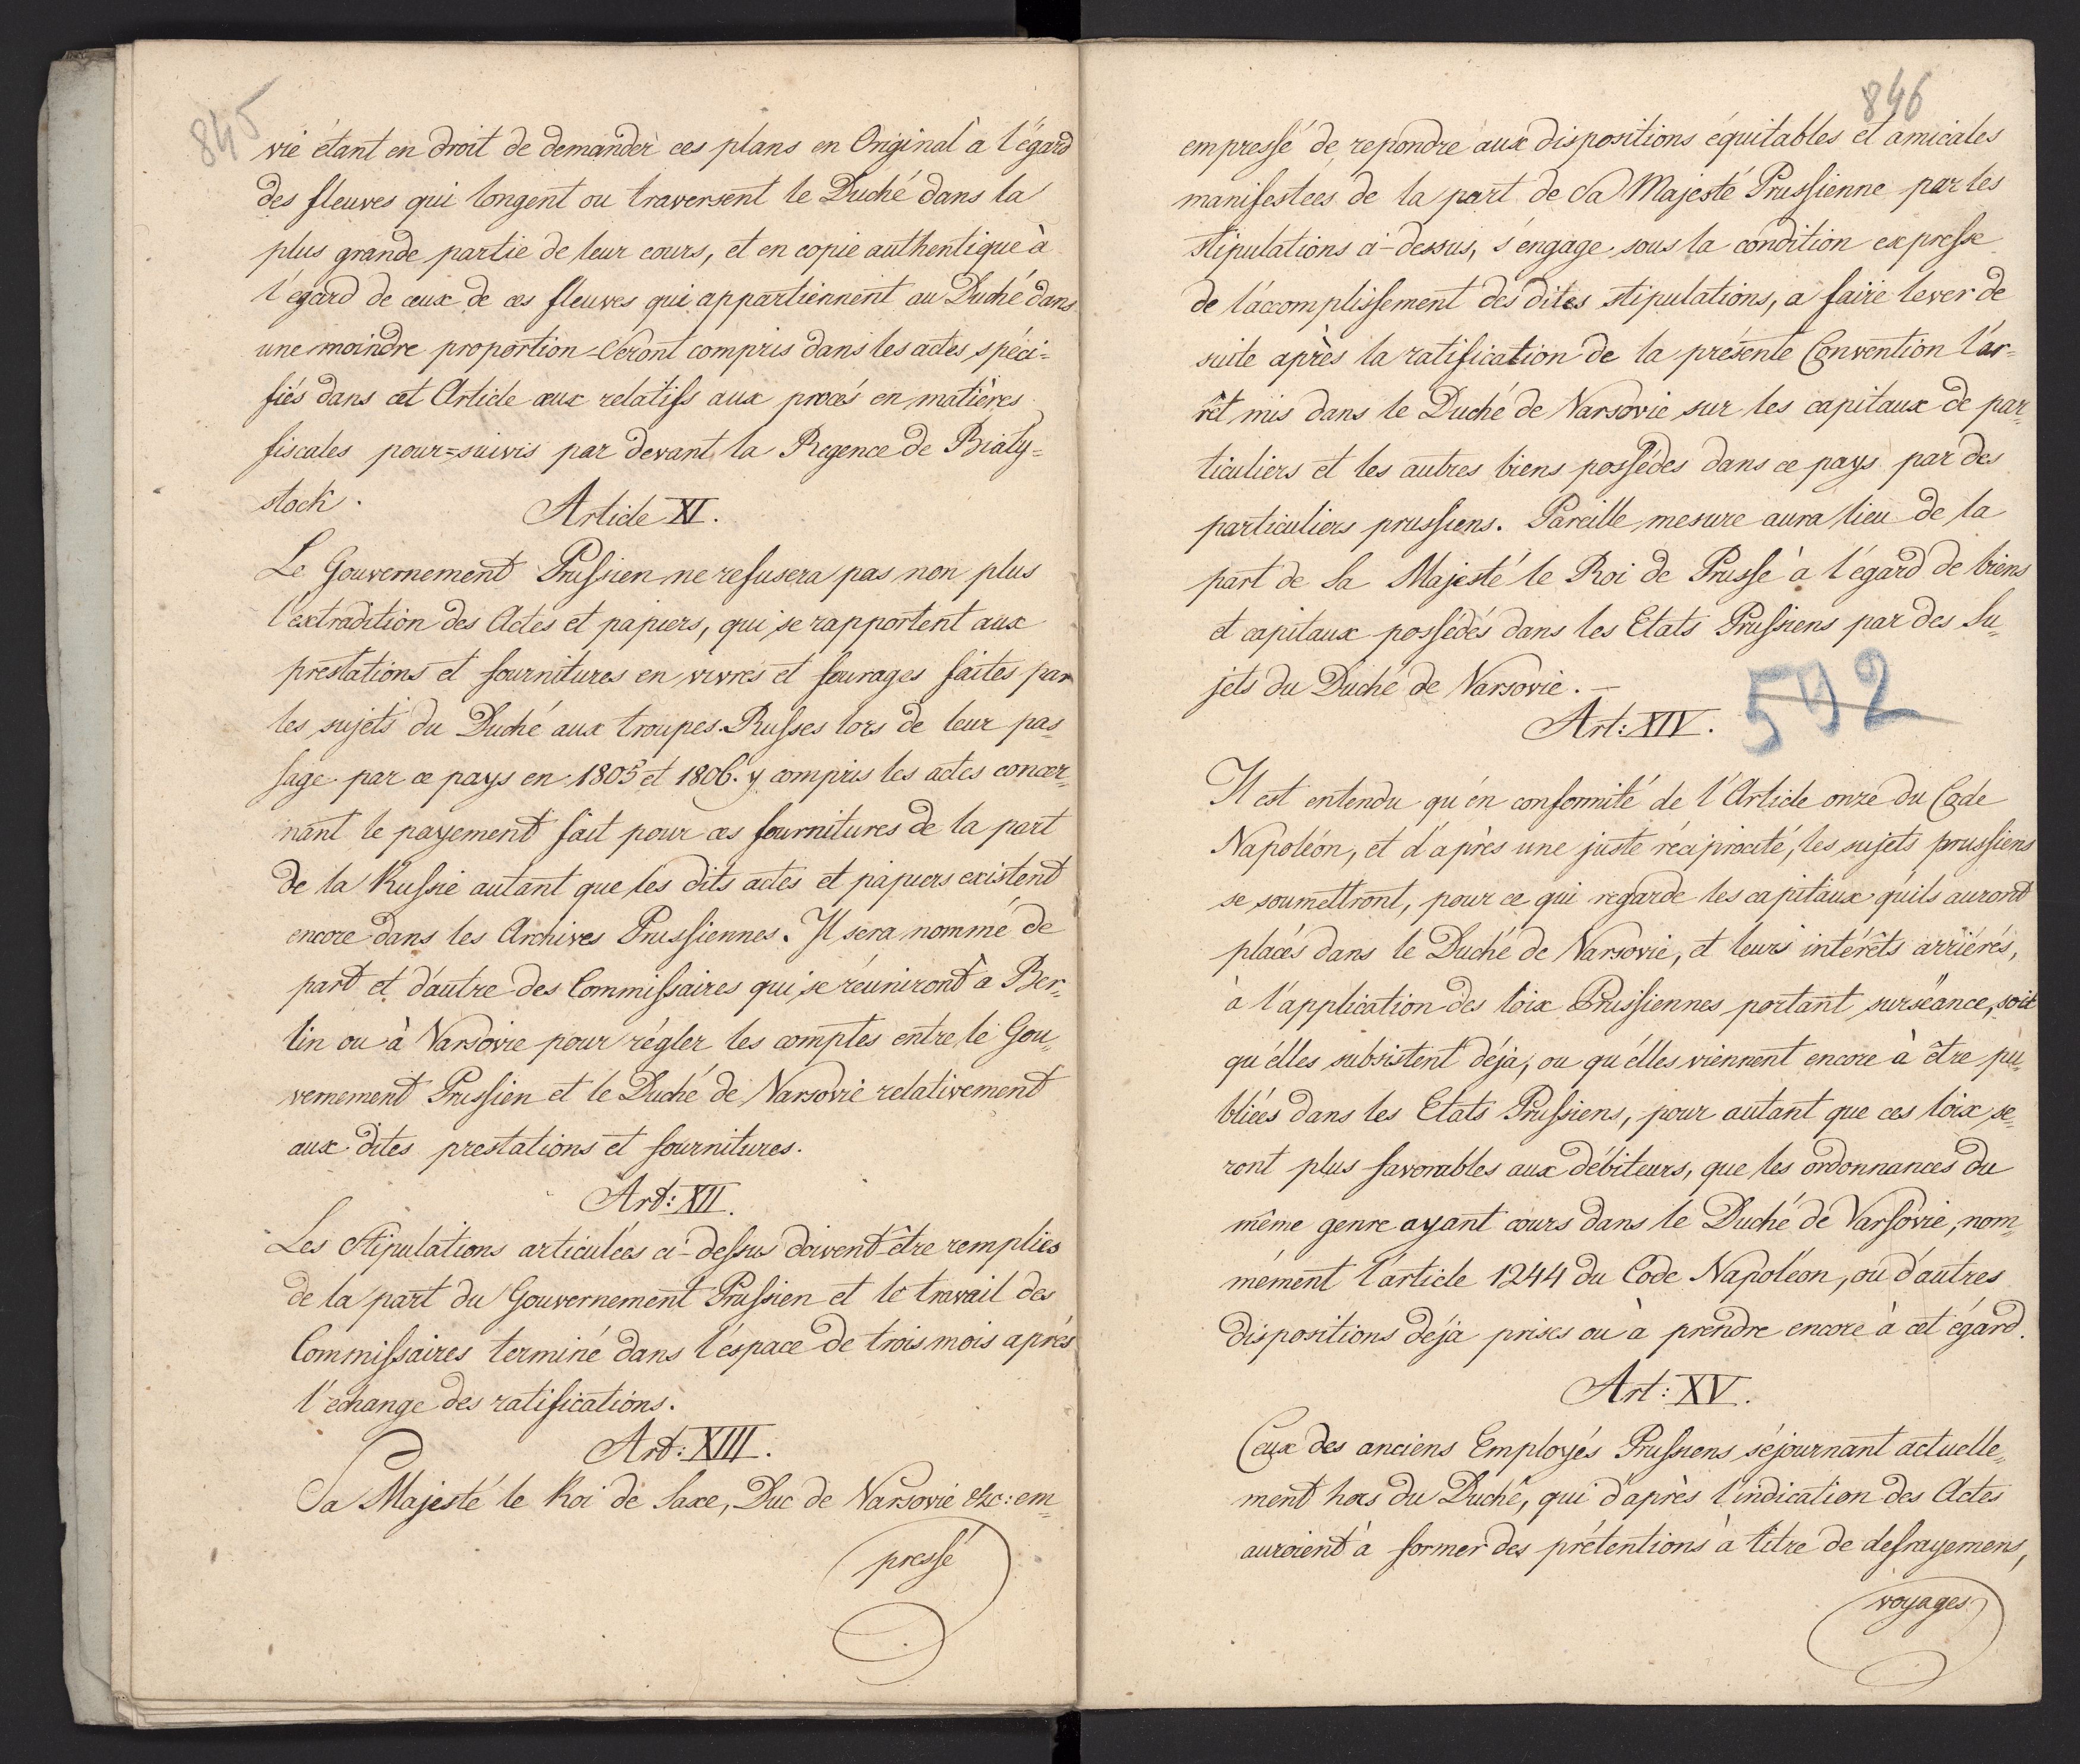 845
vie étant en droit de demander ces plans en Original à l'égard
des fleuves qui longent ou traversent le Duché dans la
plus grande partie de leur cours, et en copie authentique à
l'égard de ceux de ces fleuves qui appartiennent au Duché dans
une moindre proportion - Seront compris dans les actes spéci=
fiés dans cet Article ceux relatifs aux procés en matières
fiscales pour=suivis par devant la Regence de Bialy=
stock.
Article XI.
Le Gouvernement Prussien ne refusera pas non plus
l'extradition des Actes et papiers, qui se rapportent aux
prestations et fournitures en vivres et fourages faites par
les sujets du Duché aux troupes Russes lors de leur pas=
sage par ce pays en 1805 et 1806. y compris les actes concer=
nant le payement fait pour ces fournitures de la part
de la Russie autant que les dits actes et papiers existent
encore dans les Archives Prussiennes. Il sera nommé de
part et d'autre des Commissaires qui se réuniront a Ber=
lin ou à Varsovie pour régler les comptes entre le Gou=
vernement Prussien et le Duché de Varsovie relativement
aux dites prestations et fournitures.
Art: XII.
Les Stipulations articulées ci-dessus doivent être remplies
de la part du Gouvernement Prussien et le travail des
Commissaires terminé dans l'éspace de trois mois aprés
l'echange des ratifications.
Art: XIII.
Sa Majesté le Roi de Saxe, Duc de Varsovie &c: em=
pressé
846
empressé de repondre aux dispositions équitables et amicales
manifestees de la part de Sa Majesté Prussienne par les
stipulations ci-dessus, s'engage sous la condition expresse
de l'accomplissement des dites stipulations, a faire lever de
suite après la ratification de la présente Convention l'ar=
rêt mis dans le Duché de Varsovie sur les capitaux de par
ticuliers et les autres biens possédes dans ce pays par des
particuliers prussiens. Pareille mesure aura lieu de la
part de Sa Majesté le Roi de Prusse à l'égard de biens
et capitaux possédés dans les Etats Prussiens par des Su=
jets du Duché de Varsovie. —
592
Art: XIV.
Il est entendu qu'en conformité de l'Article onze du Code
Napoléon, et d'après une juste réciprocité, les sujets prussiens
se soumettront, pour ce qui regarde les capitaux qu'ils auront
placés dans le Duché de Varsovie, et leurs intérêts arriérés,
à l'application des loix Prussiennes portant surséance, soit
qu'élles subsistent déja, ou qu'élles viennent encore à être pu=
bliées dans les Etats Prussiens, pour autant que ces loix se=
ront plus favorables aux débiteurs, que les ordonnances du
même genre ayant cours dans le Duché de Varsovie, nom=
mément l'article 1244 du Code Napoléon, ou d'autres
dispositions déja prises ou à prendre encore à cet égard.
Art: XV.
Ceux des anciens Employés Prussiens séjournant actuelle=
ment hors du Duché, qui d'après l'indication des Actes
auroient à former des prétentions à titre de defrayemens,
voyages